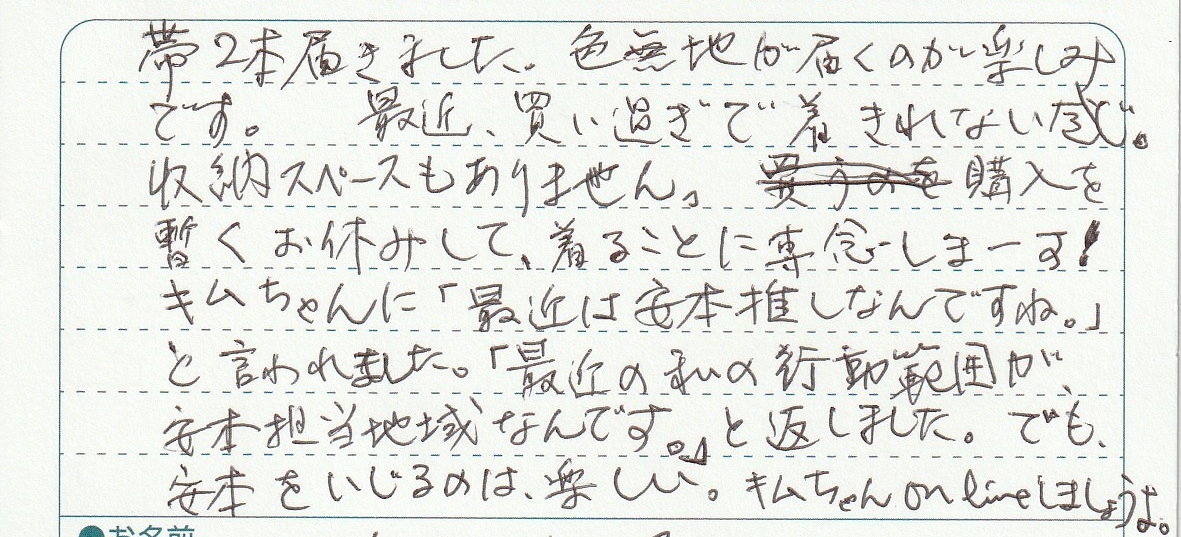 帯2本届きました。色無地が届くのが楽しみ
です。 最近、買い過ぎで着きれない感じ。
収納スペースもありません。 買うのを 購入を
暫くお休みして、着ることに専念しまーす!
キムちゃんに「最近は安本推しなんですね。」
と言われました。「最近の私の行動範囲が、
安本担当地域なんです。」と返しました。でも、
安本をいじるのは、楽しい。キムちゃんonlineしましょうよ。
●お名前